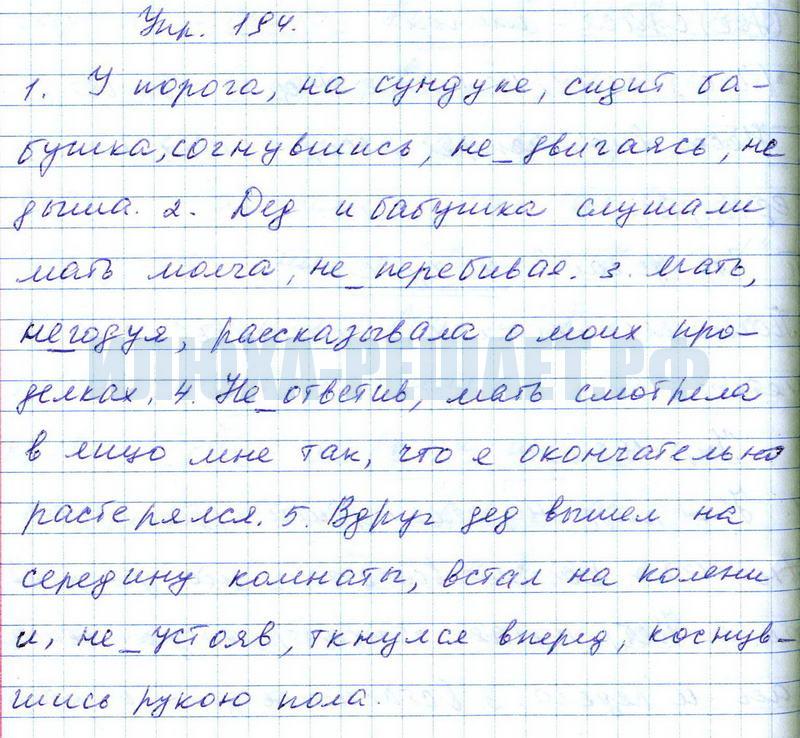 Упр. 194.
1. У порога, на сундуке, сидит ба-
бушка, согнувшись, не_двигаясь, не
дыша. 2. Дед и бабушка слушали
мать молча, не_перебивая. 3. Мать,
негодуя, рассказывала о моих про-
делках. 4. Не_ответив, мать смотрела
в лицо мне так, что я окончательно
растерялся. 5. Вдруг дед вышел на
середину комнаты, встал на колени
и, не_устояв, ткнулся вперед, коснув-
шись рукою пола.
ИЛЮХА-РЕШАЕТ.РФ